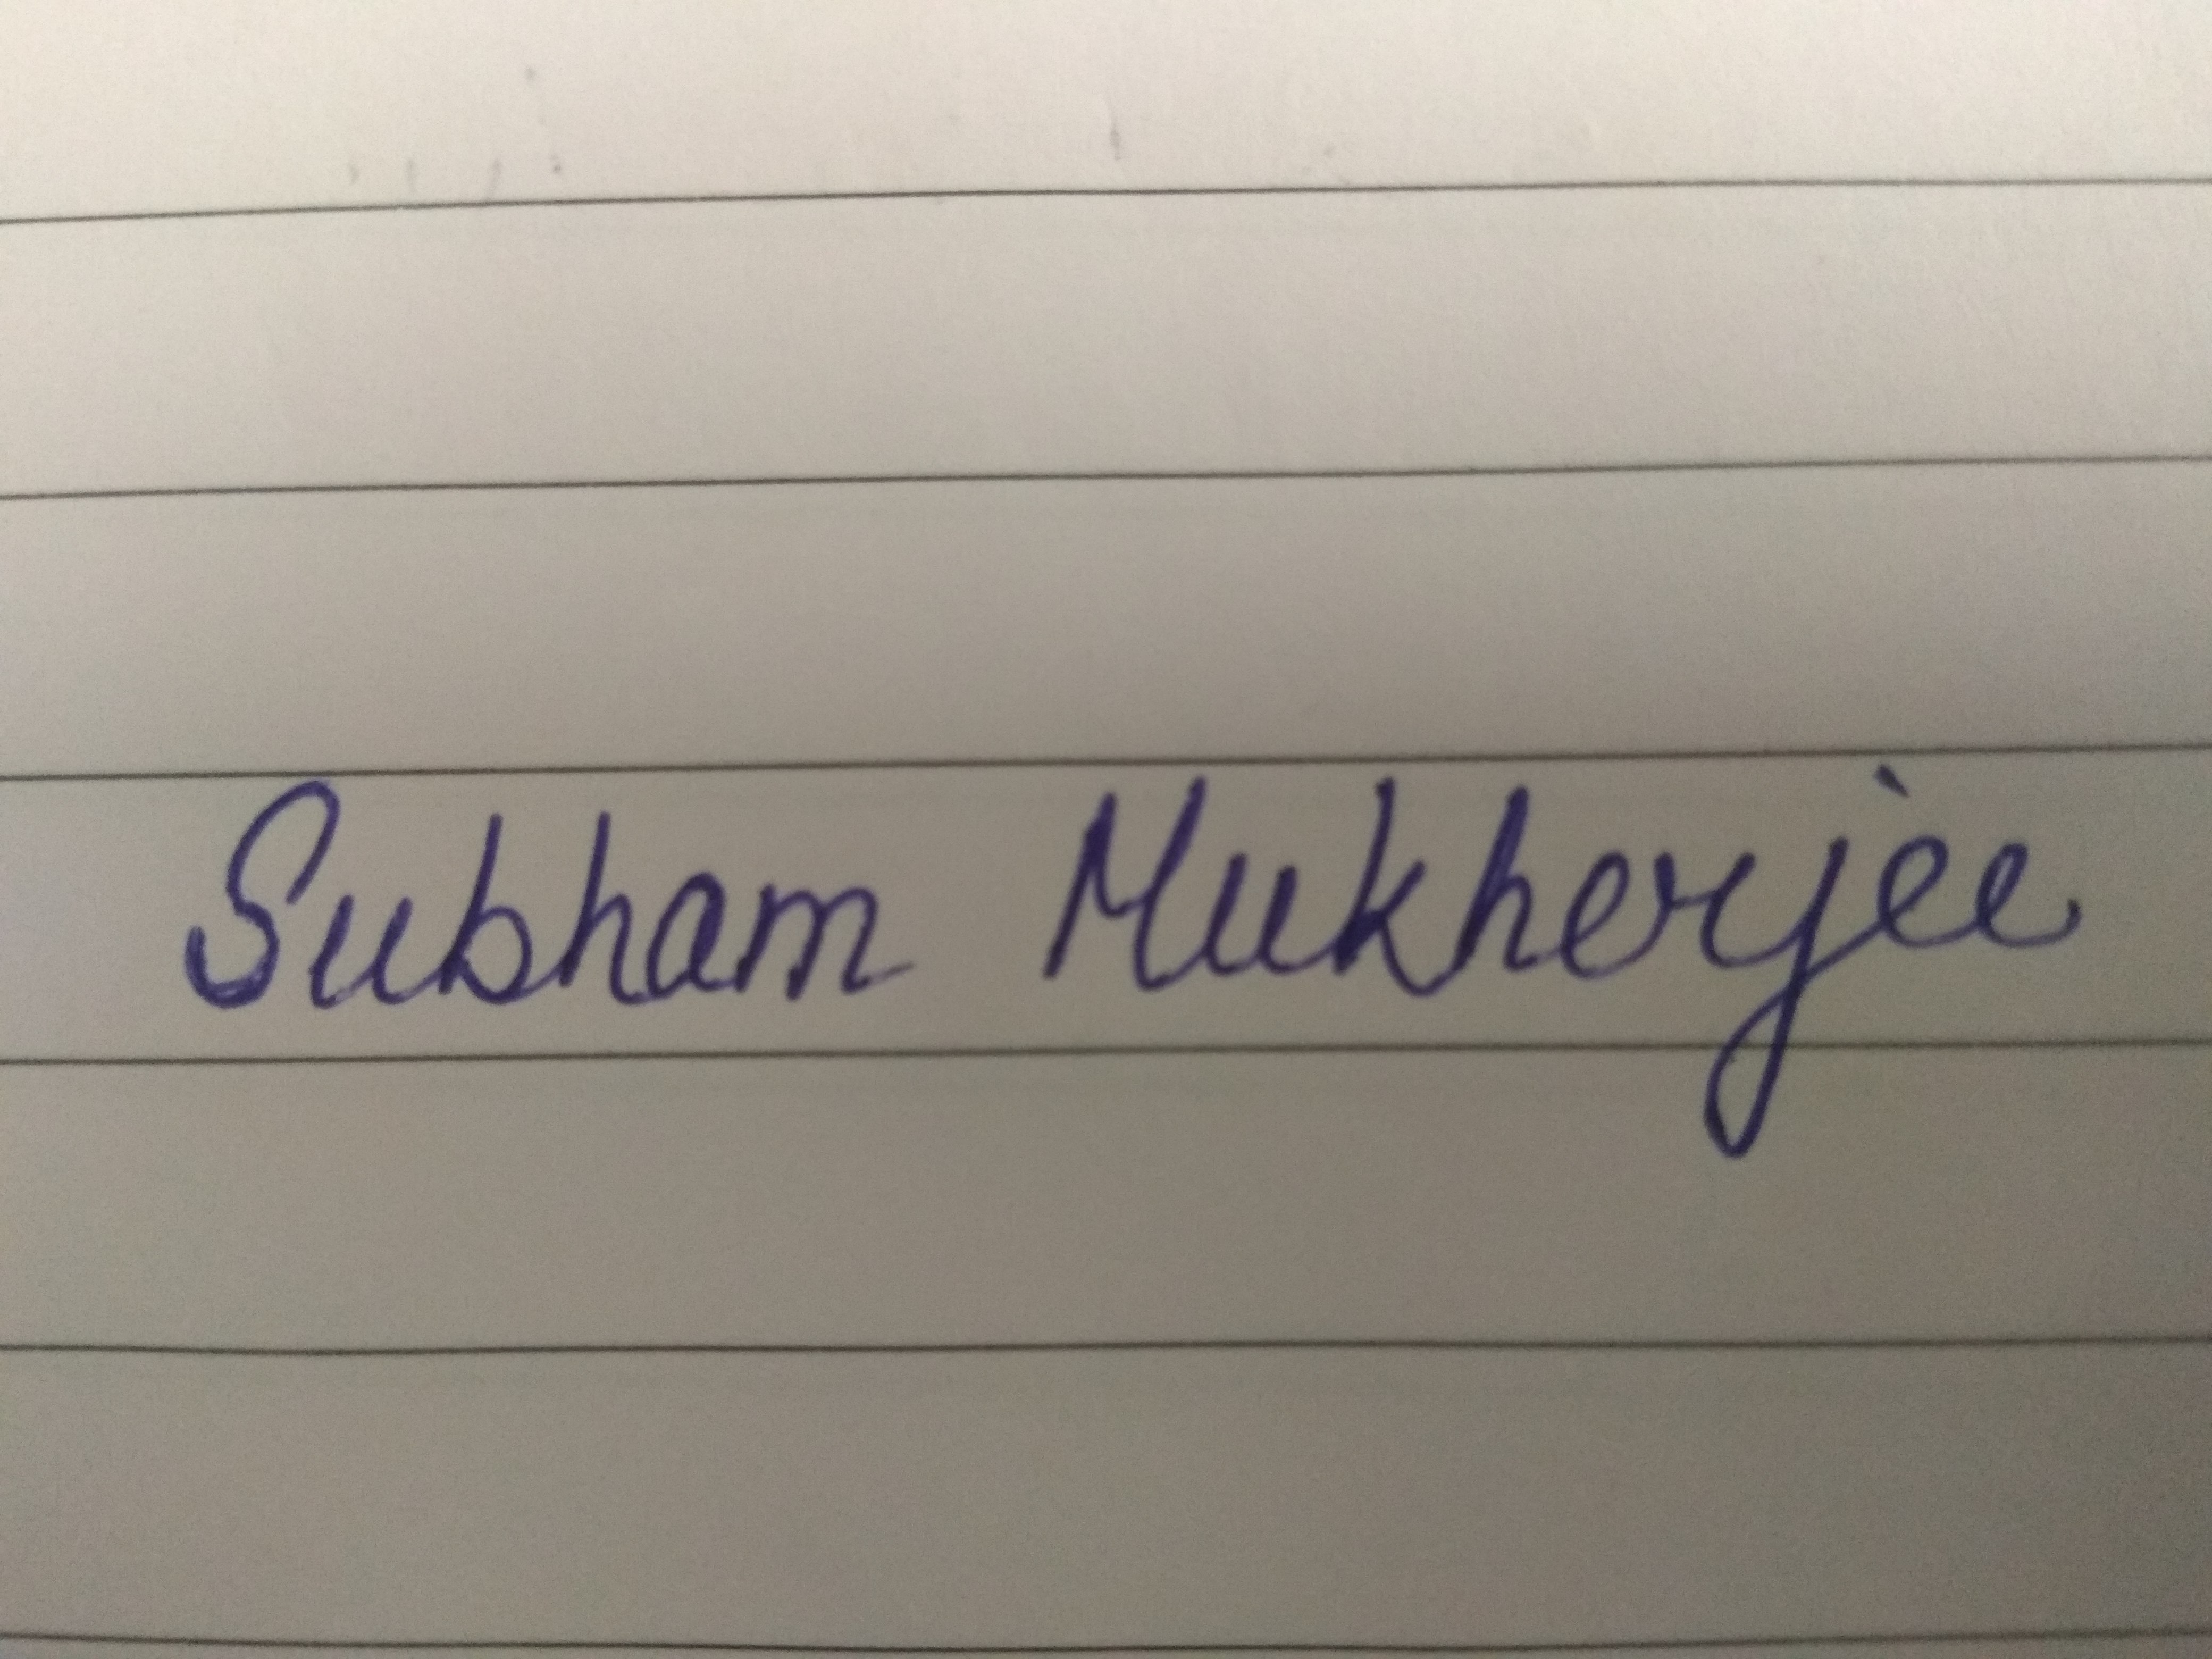 Subham Mukherjee